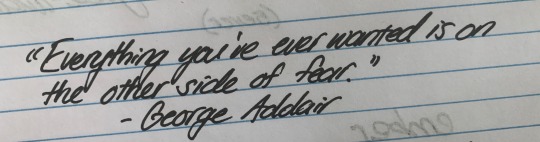 "Everything you've ever wanted is on
the other side of fear."
- George Addair